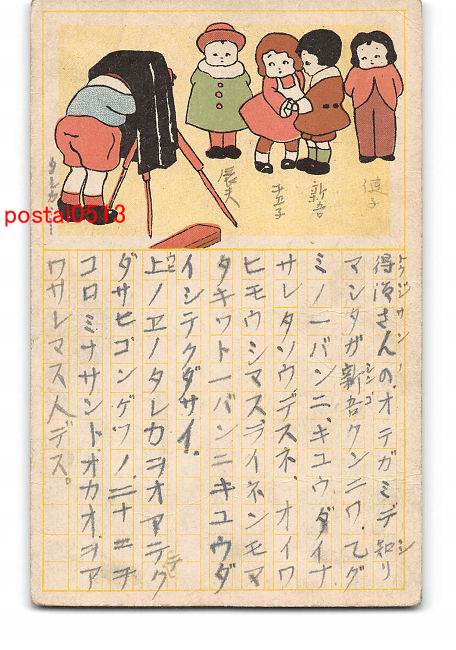 健子
新吾
辰夫
タレカ
postal0513
得次さんの、オテガミデ知リ
マシタガ新吾クンニワ、乙グ
ミノ一バンニ、キユウダイナ
サレタソウデスネ、オイワ
ヒモウシマスライネンモマ
タキット一バンニキユウダ
イシテクダサイ。
上ノヱノタレカヲオアテク
ダサヒゴンゲツノ、
コロミナサント、オカオヲア
ワサレマス人デス。